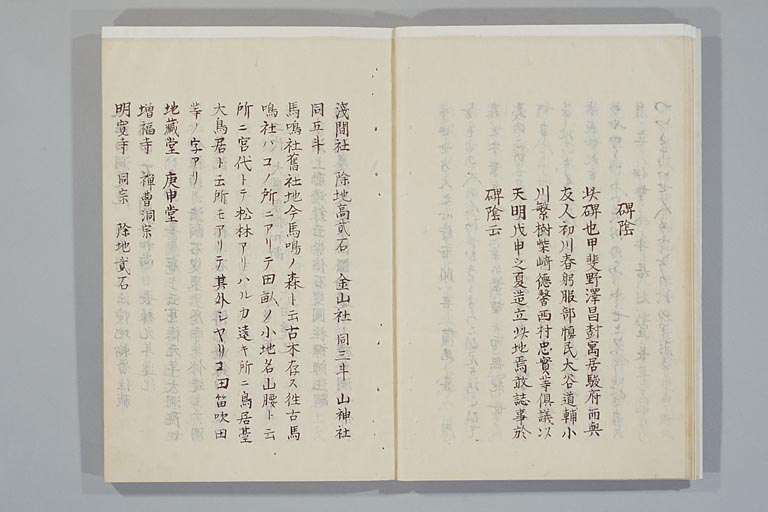 碑陰
此碑也甲斐野澤昌尌寓居駿府而與
友人初川春躬服部慎民大谷道輔小
川繁樹柴﨑徳馨西村忠實等俱議以
天明戊申之夏造立此地焉敢誌事於
碑陰云
淺間社 除地高貳石 金山社 同三斗 山神社
同五斗
馬鳴社舊社地今馬鳴ノ森ト云古木存ス徃古馬
鳴社ハコノ所ニアリテ田畝ノ小地名山腰ト云
所ニ宮代トテ松林アリハルカ遠キ所ニ鳥居䑓
大鳥居ト云所モアリテ其外シヤリコ田笛吹田
等ノ字アリ
地藏堂 庚申堂
増福寺 禅曹洞宗
明寛寺 同宗 除地貳石